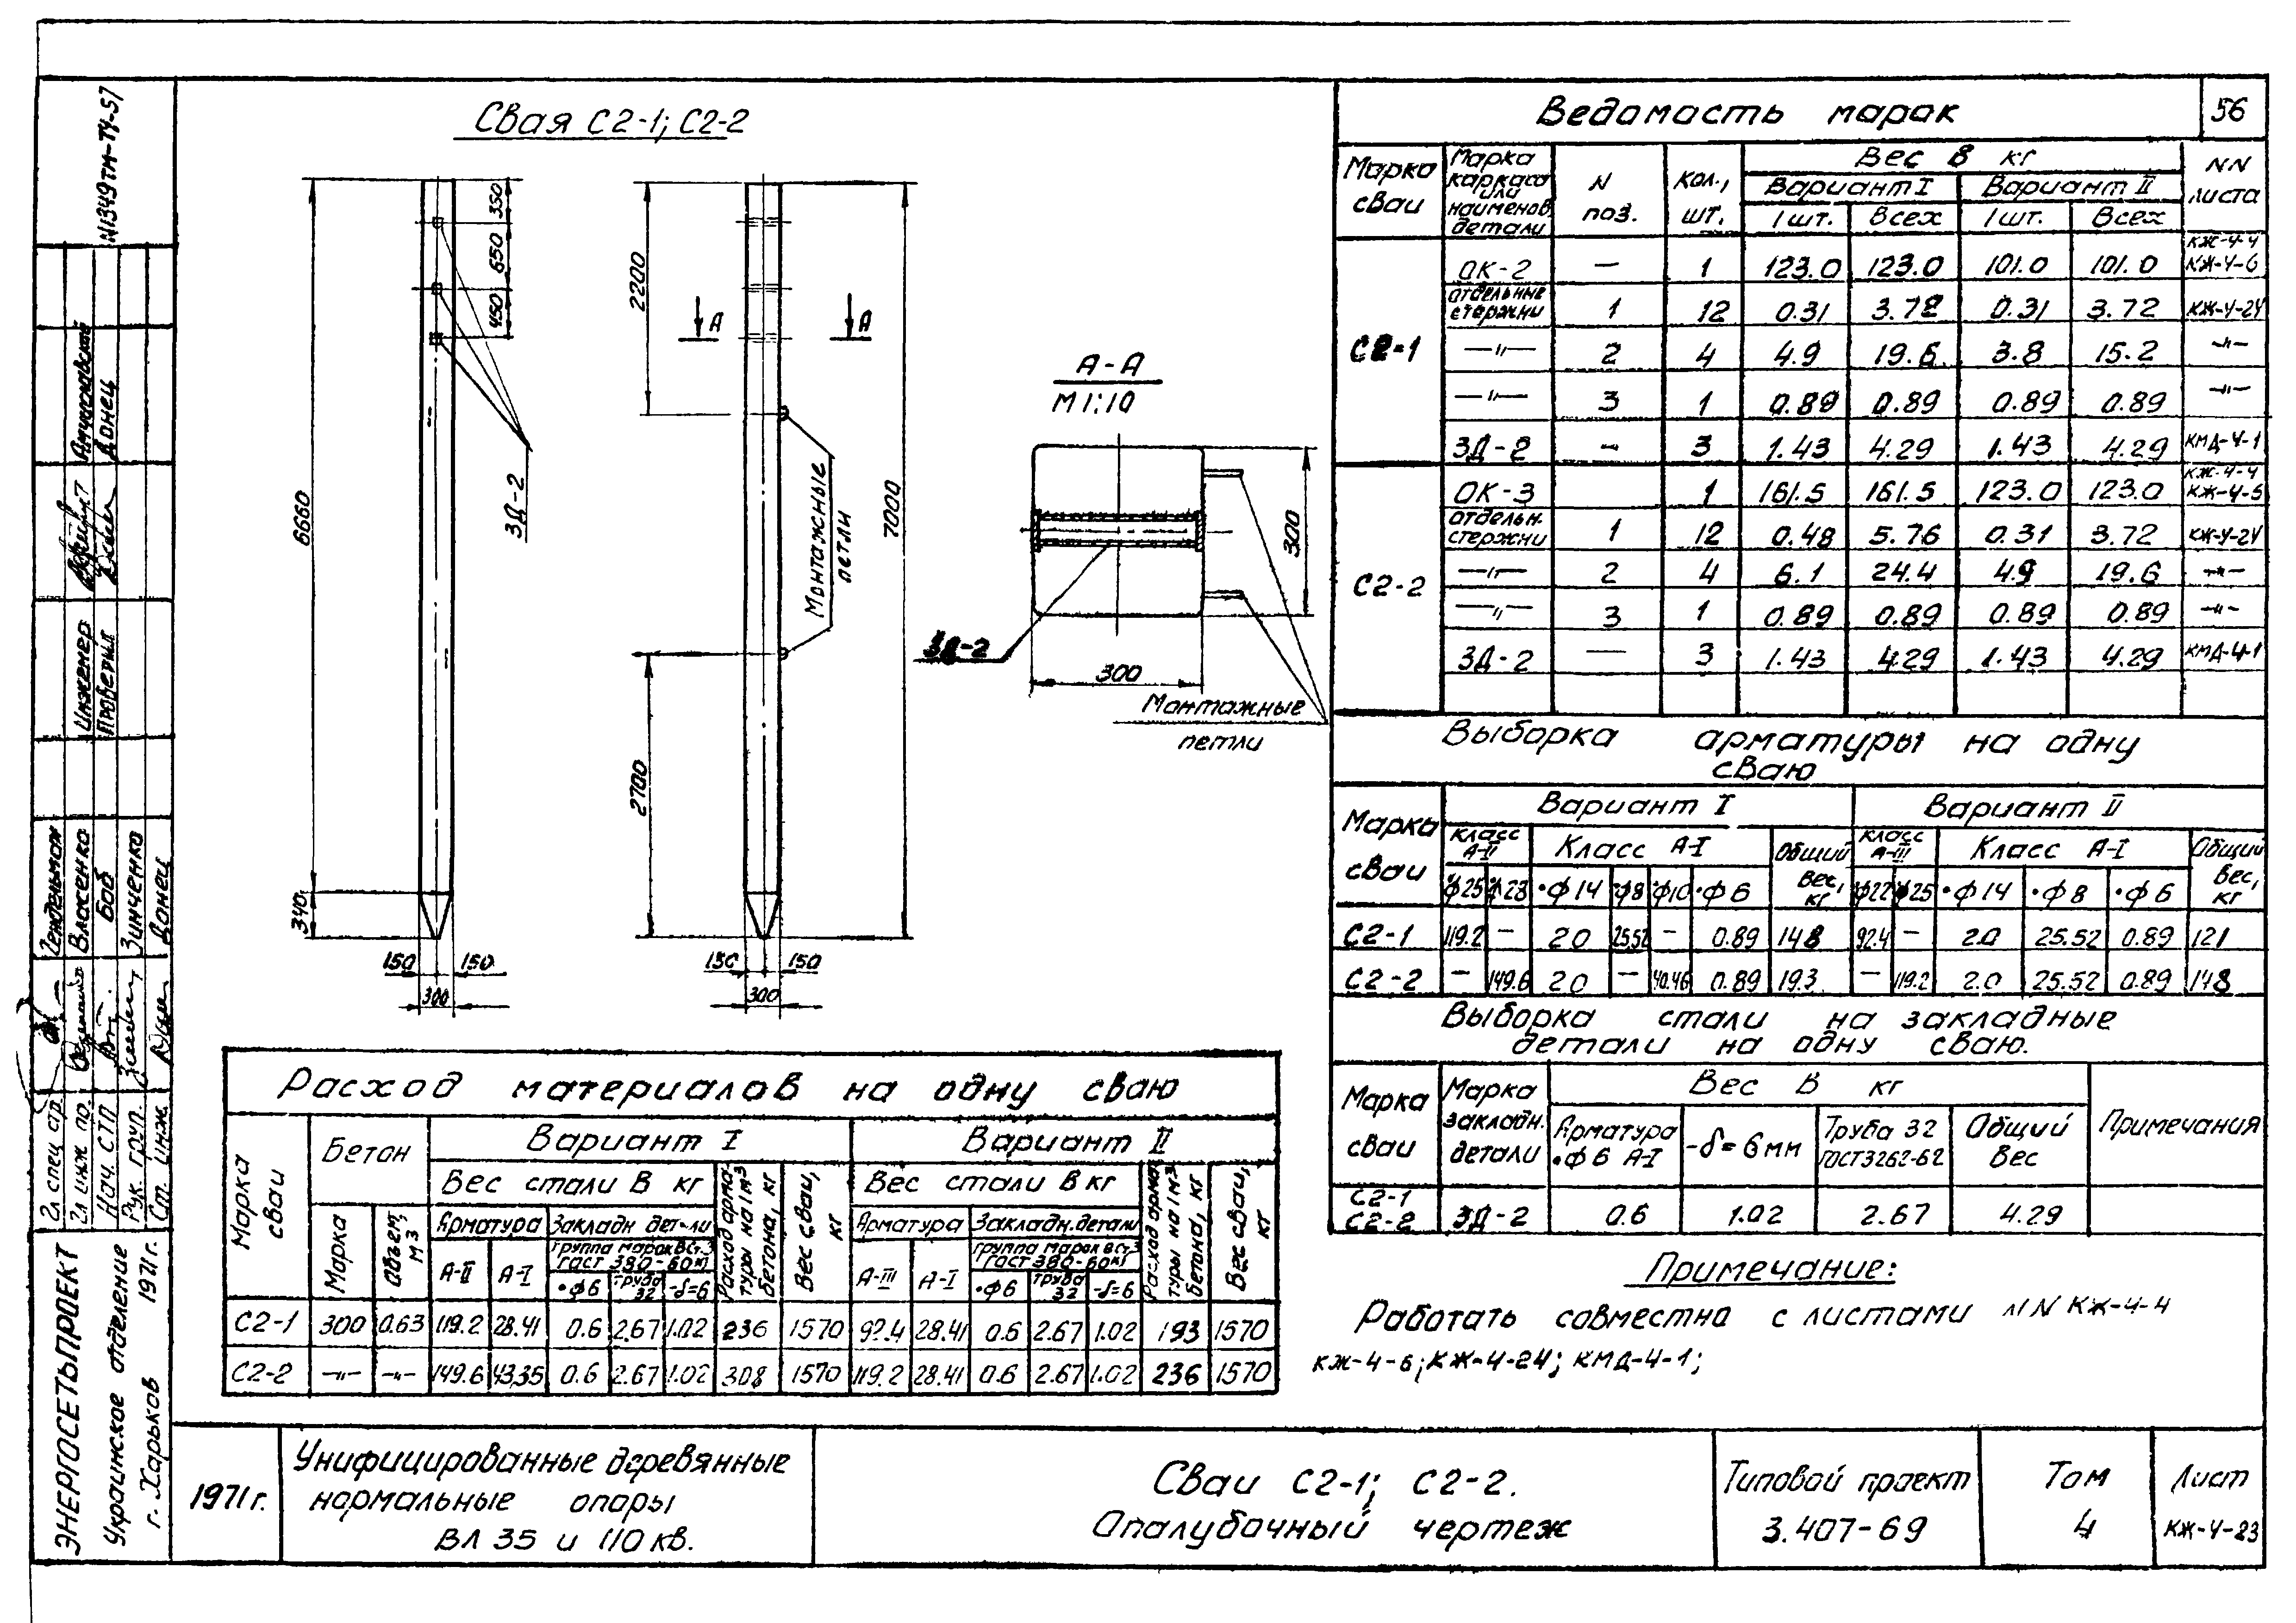 56
N1349тм-ТУ-57
Свая С2-1; С2-2
350
650
450
6660
340
ЗД-2
150 150
300
2200
2700
7000
А А
Монтажные
петли
150 150
300
А-А
М 1:10
300
300
ЗД-2
Монтажные
петли
Ведомасть марак
Марка сваи
Марка каркаса или наименов. детали
N поз.
Кол., шт.
Вес в кг
Вариант I Вариант II
1 шт. Всех 1 шт. Всех
NN листа
С2-1
ОК-2 — 1 123.0 123.0 101.0 101.0 КЖ-4-4 КЖ-4-6
отдельные стержни 1 12 0.31 3.72 0.31 3.72 КЖ-4-24
—"— 2 4 4.9 19.6 3.8 15.2 —"—
—"— 3 1 0.89 0.89 0.89 0.89 —"—
ЗД-2 — 3 1.43 4.29 1.43 4.29 КМД-4-1
С2-2
ОК-3 1 161.5 161.5 123.0 123.0 КЖ-4-4 КЖ-4-5
отдельн. стержни 1 12 0.48 5.76 0.31 3.72 КЖ-4-24
—"— 2 4 6.1 24.4 4.9 19.6 —"—
—"— 3 1 0.89 0.89 0.89 0.89 —"—
ЗД-2 — 3 1.43 4.29 1.43 4.29 КМД-4-1
Выборка арматуры на одну
сваю
Марка сваи
Вариант I Вариант II
Класс А-II Класс А-I Общий вес, кг Класс А-III Класс А-I Общий вес, кг
ф25 ф28 •ф14 •ф8 •ф10 •ф6 ф22 ф25 •ф14 •ф8 •ф6
С2-1 119.2 — 2.0 25.52 — 0.89 148 92.4 — 2.0 25.52 0.89 121
С2-2 — 149.6 2.0 — 40.46 0.89 193 — 119.2 2.0 25.52 0.89 148
Выборка стали на закладные
детали на одну сваю.
Марка сваи
Марка закладн. детали
Вес в кг
Арматура •ф6 А-I
-δ=6мм
Труба 32 ГОСТ3262-62
Общий вес
Примечания
С2-1
С2-2 ЗД-2 0.6 1.02 2.67 4.29
Примечание:
Работать совместно с листами NN КЖ-4-4
КЖ-4-6; КЖ-4-24; КМД-4-1;
Расход материалов на одну сваю
Марка сваи
Бетон
Марка
Объем, м3
Вариант I Вариант II
Вес стали в кг Вес стали в кг
Арматура Закладн детали Арматура Закладн. детали
Группа марок ВСт.3 ГОСТ 380-60кг Группа марок ВСт.3 ГОСТ 380-60кг
А-II А-I •ф6 Труба 32 -δ=6 А-III А-I •ф6 Труба 32 -δ=6
Расход арматуры на 1м3 бетона, кг Вес сваи, кг
Расход арматуры на 1м3 бетона, кг Вес сваи, кг
С2-1 300 0.63 119.2 28.41 0.6 2.67 1.02 236 1570 92.4 28.41 0.6 2.67 1.02 193 1570
С2-2 —"— —"— 149.6 43.35 0.6 2.67 1.02 308 1570 119.2 28.41 0.6 2.67 1.02 236 1570
Инженер
Проверил Донец
Гл спец пр.
Гл инж пр. Власенко
Нач. СТП Боб
Рук. груп. Зинченко
Ст. инж. Донец
ЭНЕРГОСЕТЬПРОЕКТ
Украинское отделение
г. Харьков 1971г.
1971г.
Унифицированные деревянные
нормальные опоры
ВЛ 35 и 110 кв.
Сваи С2-1; С2-2.
Опалубочный чертеж
Типовой проект
3.407-69
Том
4
Лист
КЖ-4-23